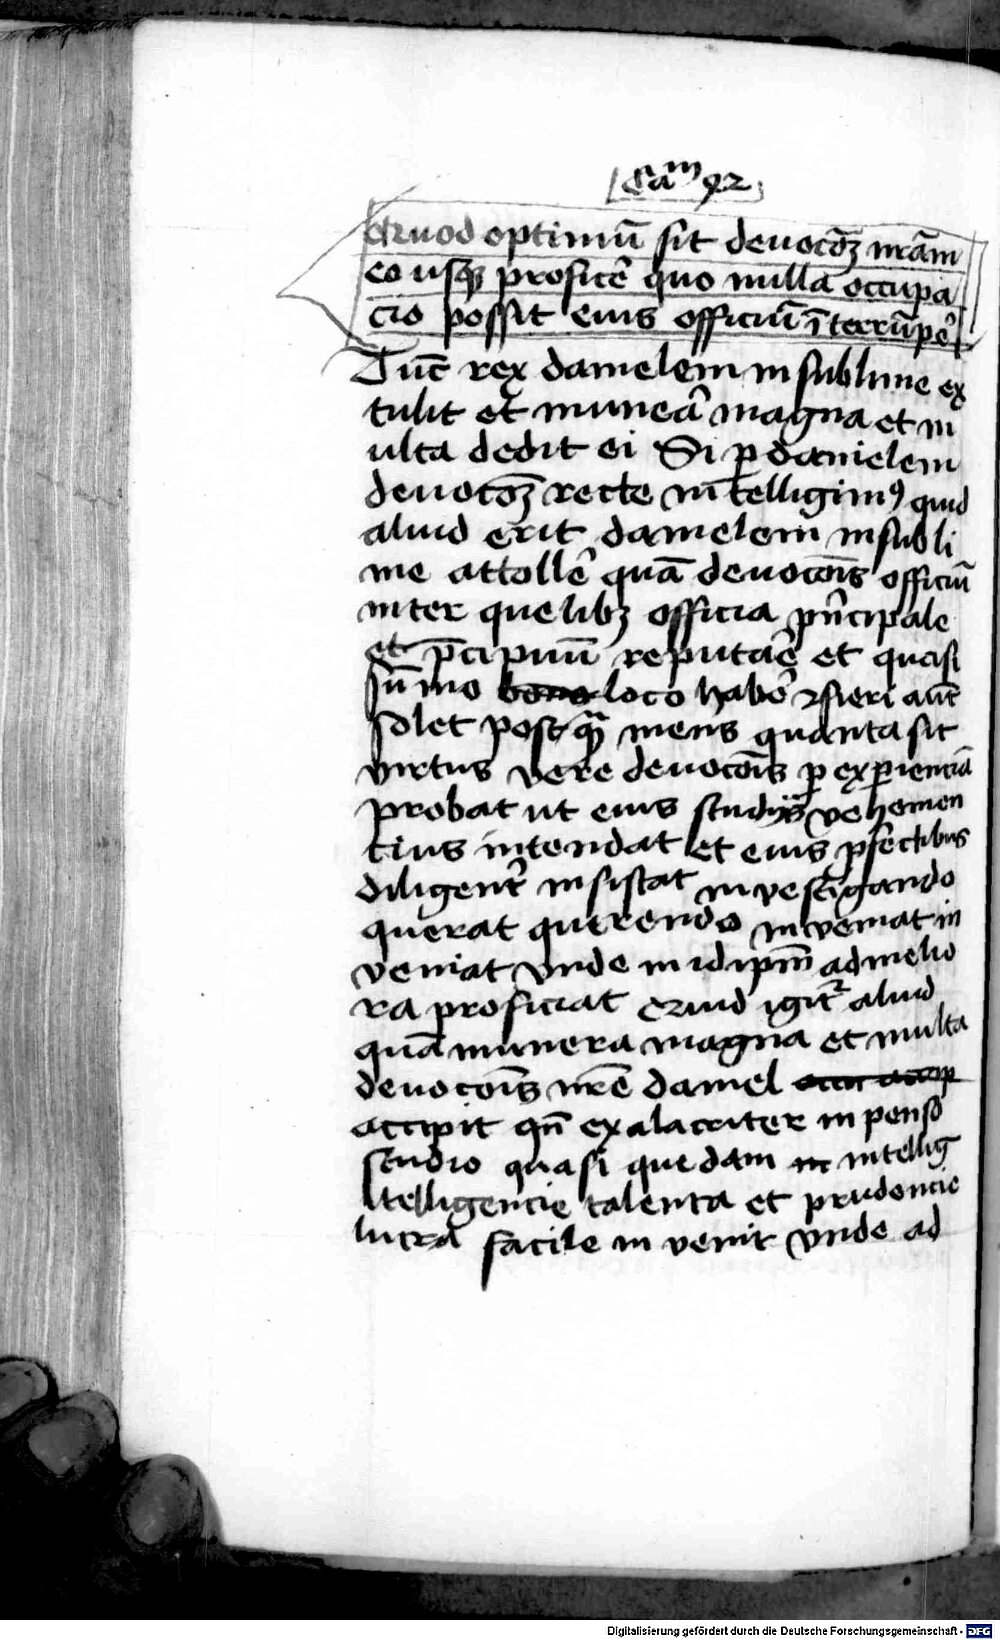 Cam 92
Quod optimū sit deuocōꝫ nrām
eo usqꝫ proficē quo nulla occupa
cio possit eius officiū īterrūpē
Tūc rex danielem in sublime ex
tulit et munēa magna et m
ulta dedit ei Si ꝑ danielem
deuocōꝫ recte intelligimꝰ quid
aliud erit danielem in subli
me attollē quā deuocōis officiū
inter quelibꝫ officia pͥncipale
et p̄cipuū reputāē et quasi
sūmo loco habē ꝛ fieri aūt
solet postqᷓ mens quanta sit
virtus vere deuocōis ꝑ exꝑienciā
probat ut eius studijs vehemen
cius intendat et eius ꝓfectibus
diligentͥ insistat inuestigando
querat querendo inveniat in
veniat vnde in idip̄m ad melio
ra proficiat Quid igitᷣ aliud
quā munera magna et multa
deuocōis nrē daniel
accipit qn̄ ex alacriter inpenso
studio quasi quedam intellig
telligencie talenta et prudencie
lucra facile in venit vnde ad
Digitalisierung gefördert durch die Deutsche Forschungsgemeinschaft - DFG